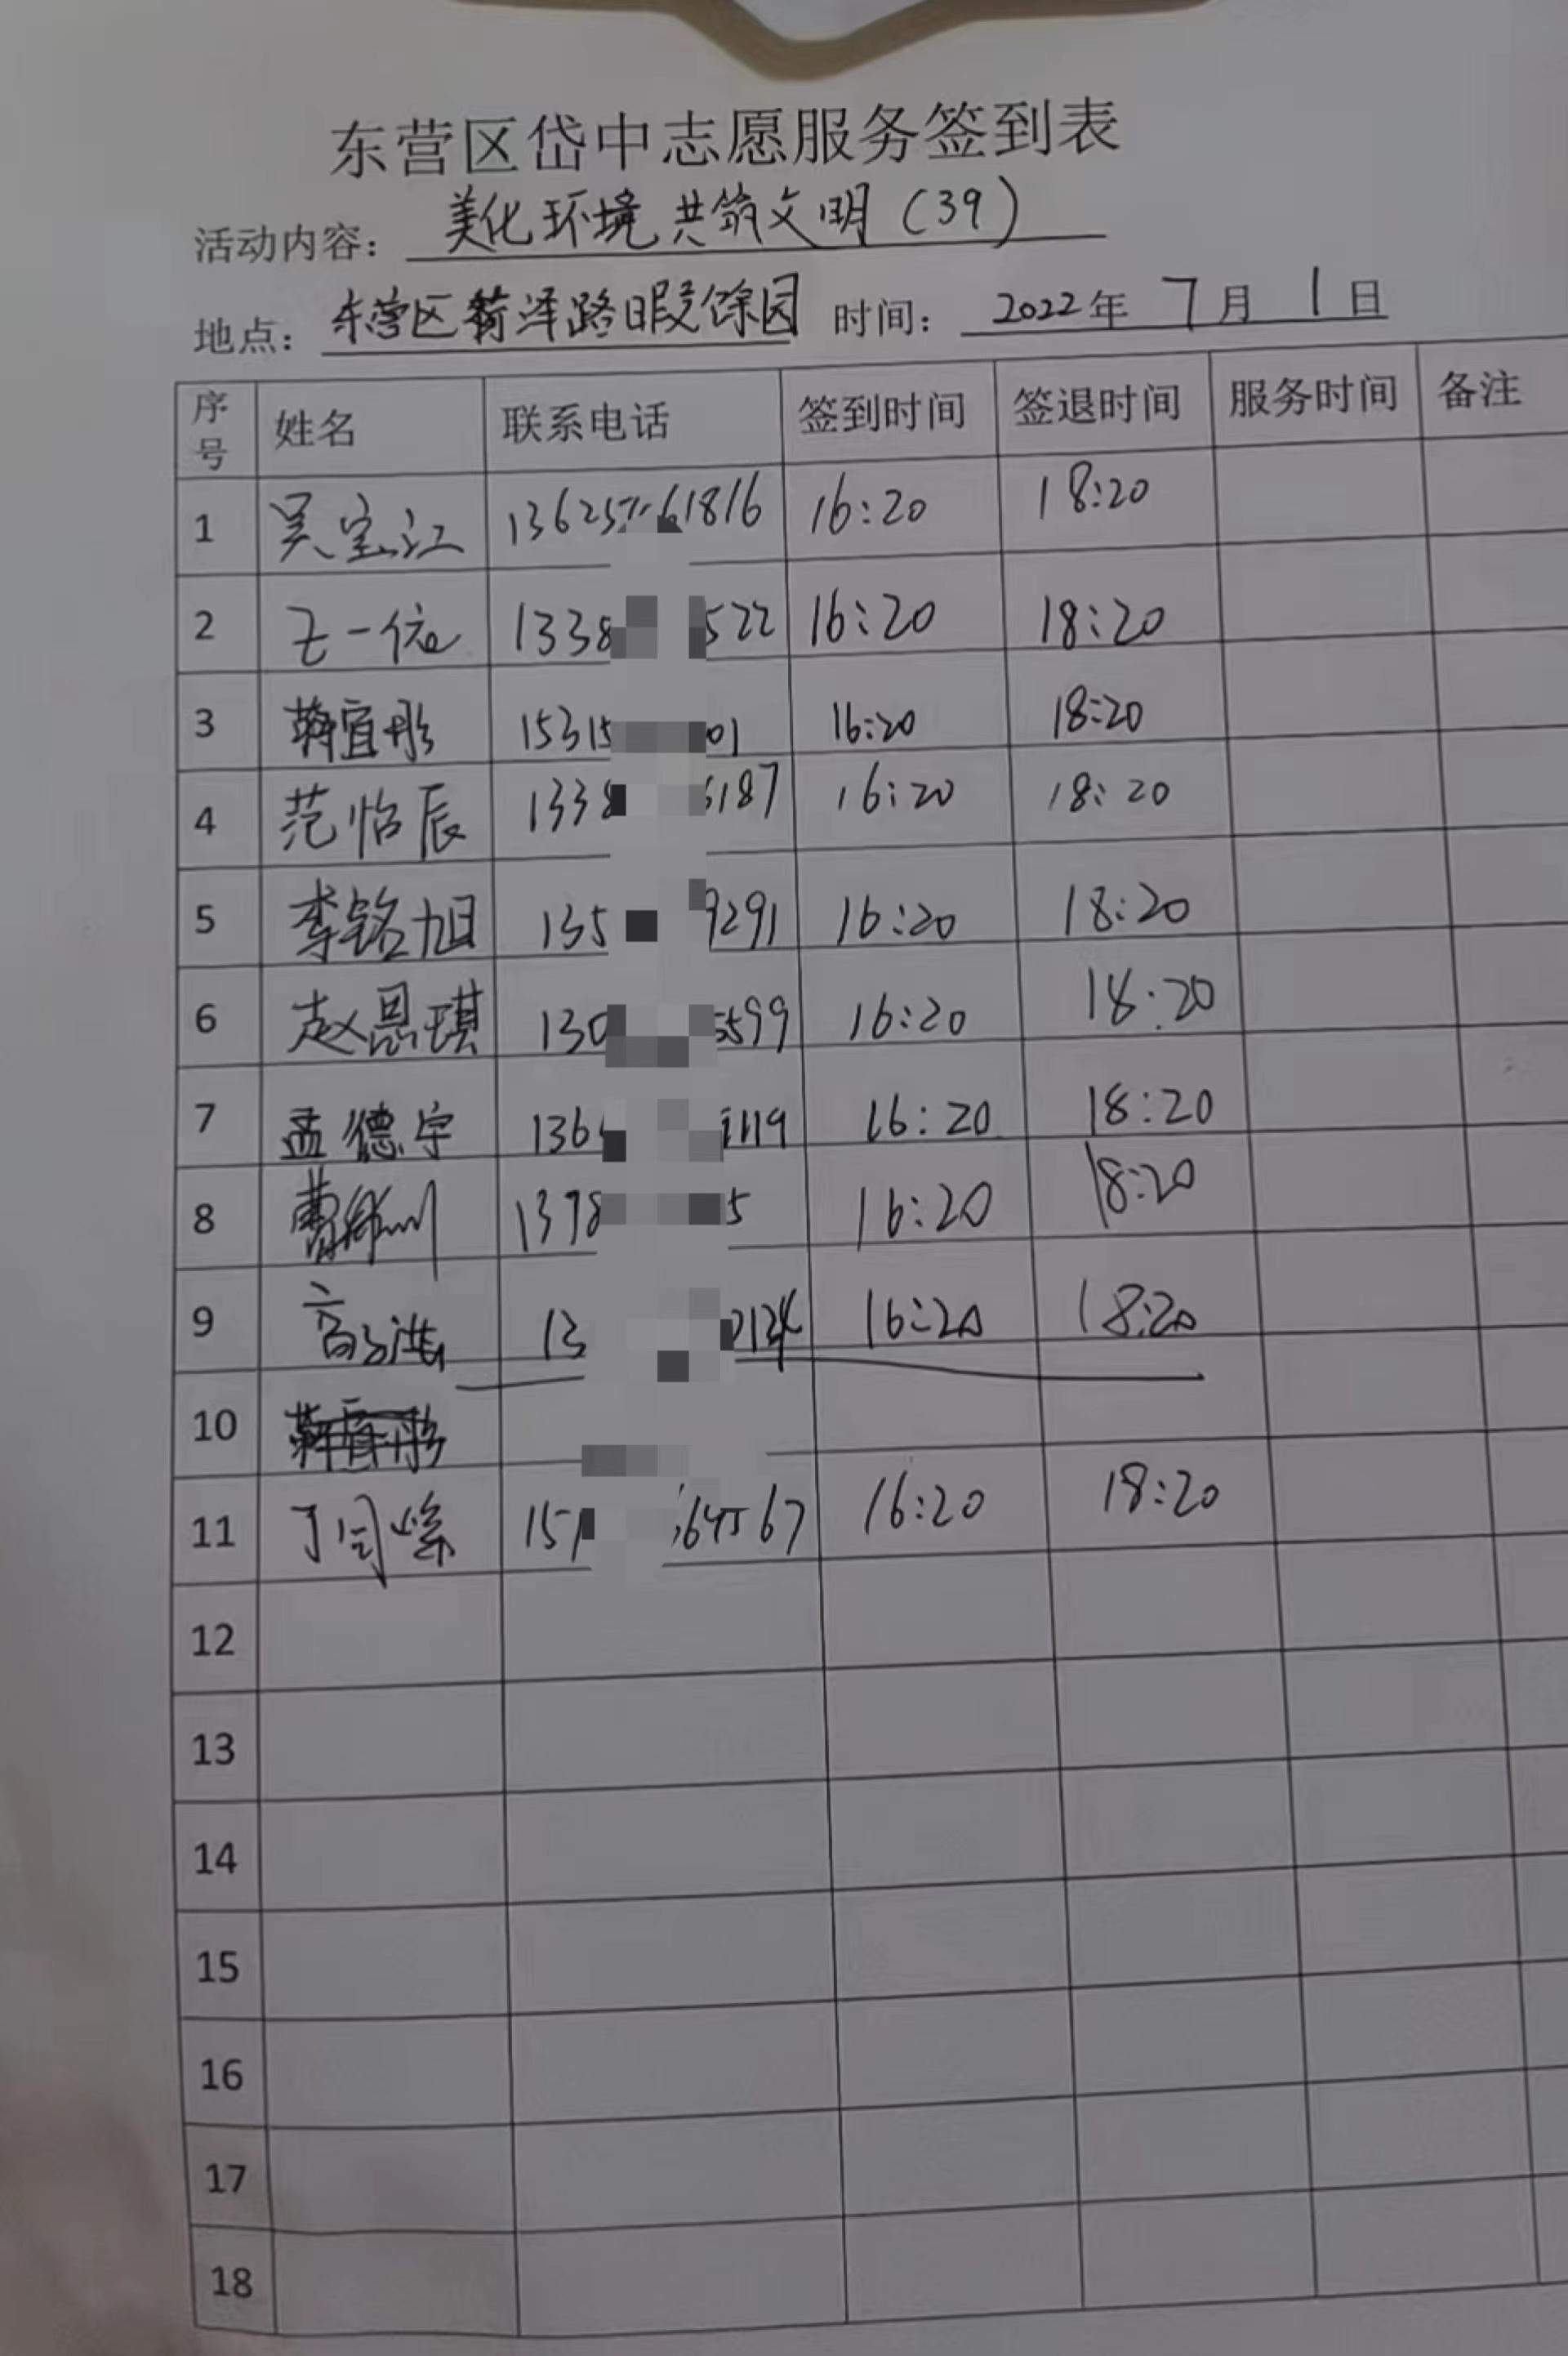 东营区岱中志愿服务签到表
活动内容: 美化环境 共筑文明(39)
地点: 东营区菏泽路暇馀园 时间: 2022年 7月 1日
序号 姓名 联系电话 签到时间 签退时间 服务时间 备注
1 吴宝江 61816 16:20 18:20
2 1338 522 16:20 18:20
3 宜彤 15315 01 16:20 18:20
4 范怡辰 1338 6187 16:20 18:20
5 李铭旭 135 9291 16:20 18:20
6 赵恩琪 130 5599 16:20 18:20
7 孟德宇 136 119 16:20 18:20
8 曹 1398 5 16:20 18:20
9 高 13 16:20 18:20
10
11 丁 151 64567 16:20 18:20
12
13
14
15
16
17
18